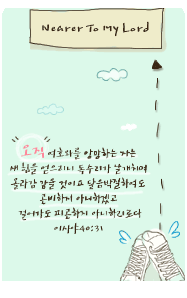 Nearer To My Lord
오직 여호와를 앙망하는 자는
새 힘을 얻으리니 독수리가 날개치며
올라감 같을 것이요 달음박질하여도
곤비하지 아니하겠고
걸어가도 피곤하지 아니하리로다
이사야 40:31